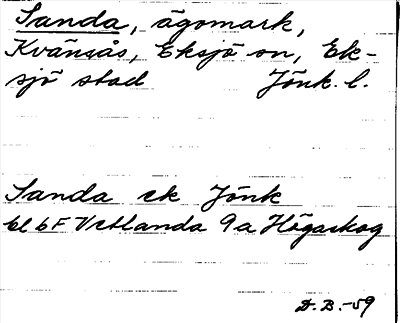 Sanda, ägomark,
Kvänsås, Eksjö sn, Ek-
sjö stad Jönk. l.
Sanda ek Jönk
bl 6F Vetlanda 9a Högaskog
D.B.-59